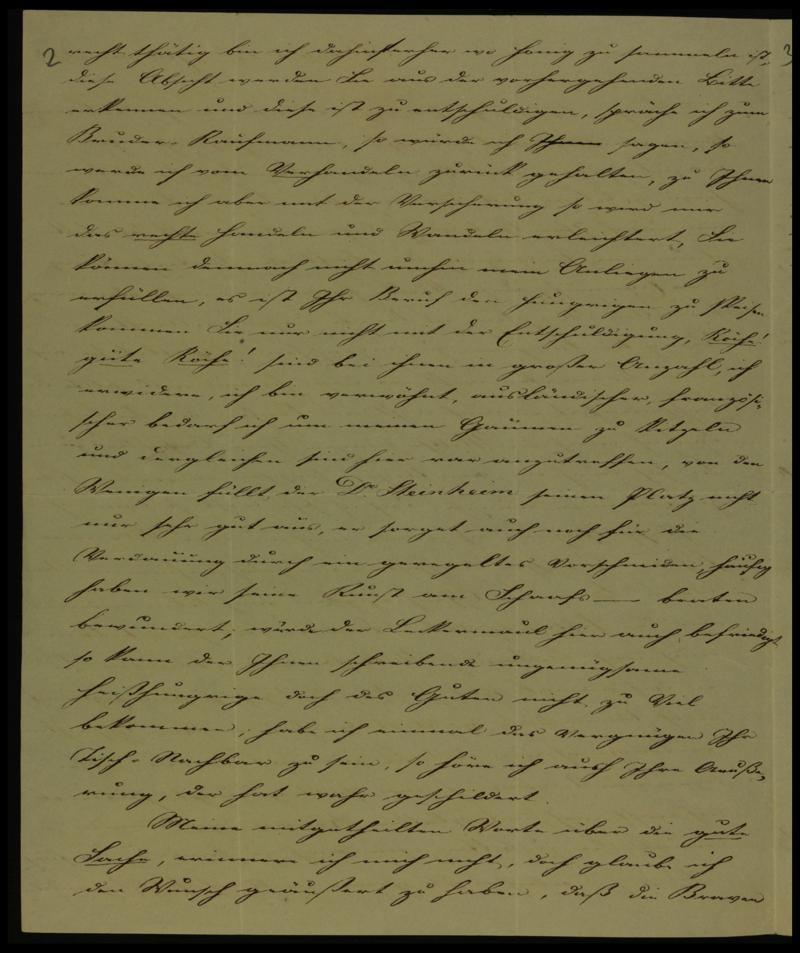 2 recht thätig bin ich dahinterher wo Honig zu sammeln ist,
diese Absicht werden Sie aus der vorhergehenden Bitte
erkennen und diese ist zu entschuldigen, spräche ich zum
Bruder-Kaufmann, so würde ich Ihnen sagen, so
werde ich vom Verhandeln zurück gehalten, zu Ihnen
komme ich aber mit der Versicherung so wird mir
das rechte Handeln und Wandeln erleichtert, Sie
können demnach nicht umhin mein Anliegen zu
erfüllen, es ist Ihr Beruf den Hungrigen zu speisen
kommen Sie nur nicht mit der Entschuldigung, Köche!
gute Köche! sind bei ihnen in großer Anzahl, ich
erwidere, ich bin verwöhnt, ausländischer, französi-
scher bedarf ich um meinen Gaumen zu kitzeln
und dergleichen sind hier rar anzutreffen, von den
Wenigen füllt der Dr Steinheim seinen Platz nicht
nur sehr gut aus, er sorget auch noch für die
Verdauung durch ein geregeltes Vorschneiden, häufig
haben wir seine Kunst am Schaafs — braten
bewundert, würde der Leckermaul hier auch befriedigt
so kann der Ihnen schreibende ungenügsame
heißhungrige doch des Guten nicht zu Viel
bekommen, habe ich einmal das Vergnügen Ihr
Tisch-Nachbar zu sein, so höre ich auch Ihre Aeuße-
rung, der hat wahr geschildert.
Meine mitgetheilten Worte über die gute
Sache, erinnere ich mich nicht, doch glaube ich
den Wunsch geäußert zu haben, daß die Braven